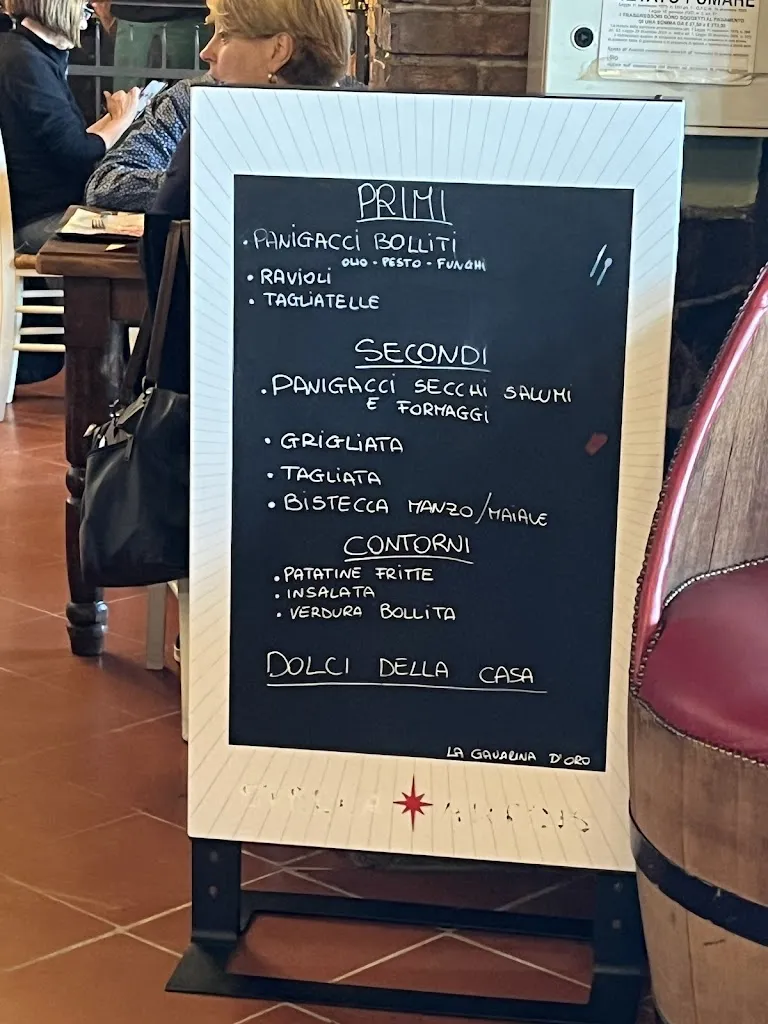 VIETATO FUMARE
I TRASGRESSORI SONO SOGGETTI AL PAGAMENTO
PRIMI
• PANIGACCI BOLLITI
OLIO - PESTO - FUNGHI
• RAVIOLI
• TAGLIATELLE
SECONDI
• PANIGACCI SECCHI SALUMI
E FORMAGGI
• GRIGLIATA
• TAGLIATA
• BISTECCA MANZO/MAIALE
CONTORNI
• PATATINE FRITTE
• INSALATA
• VERDURA BOLLITA
DOLCI DELLA CASA
LA GAVARINA D'ORO